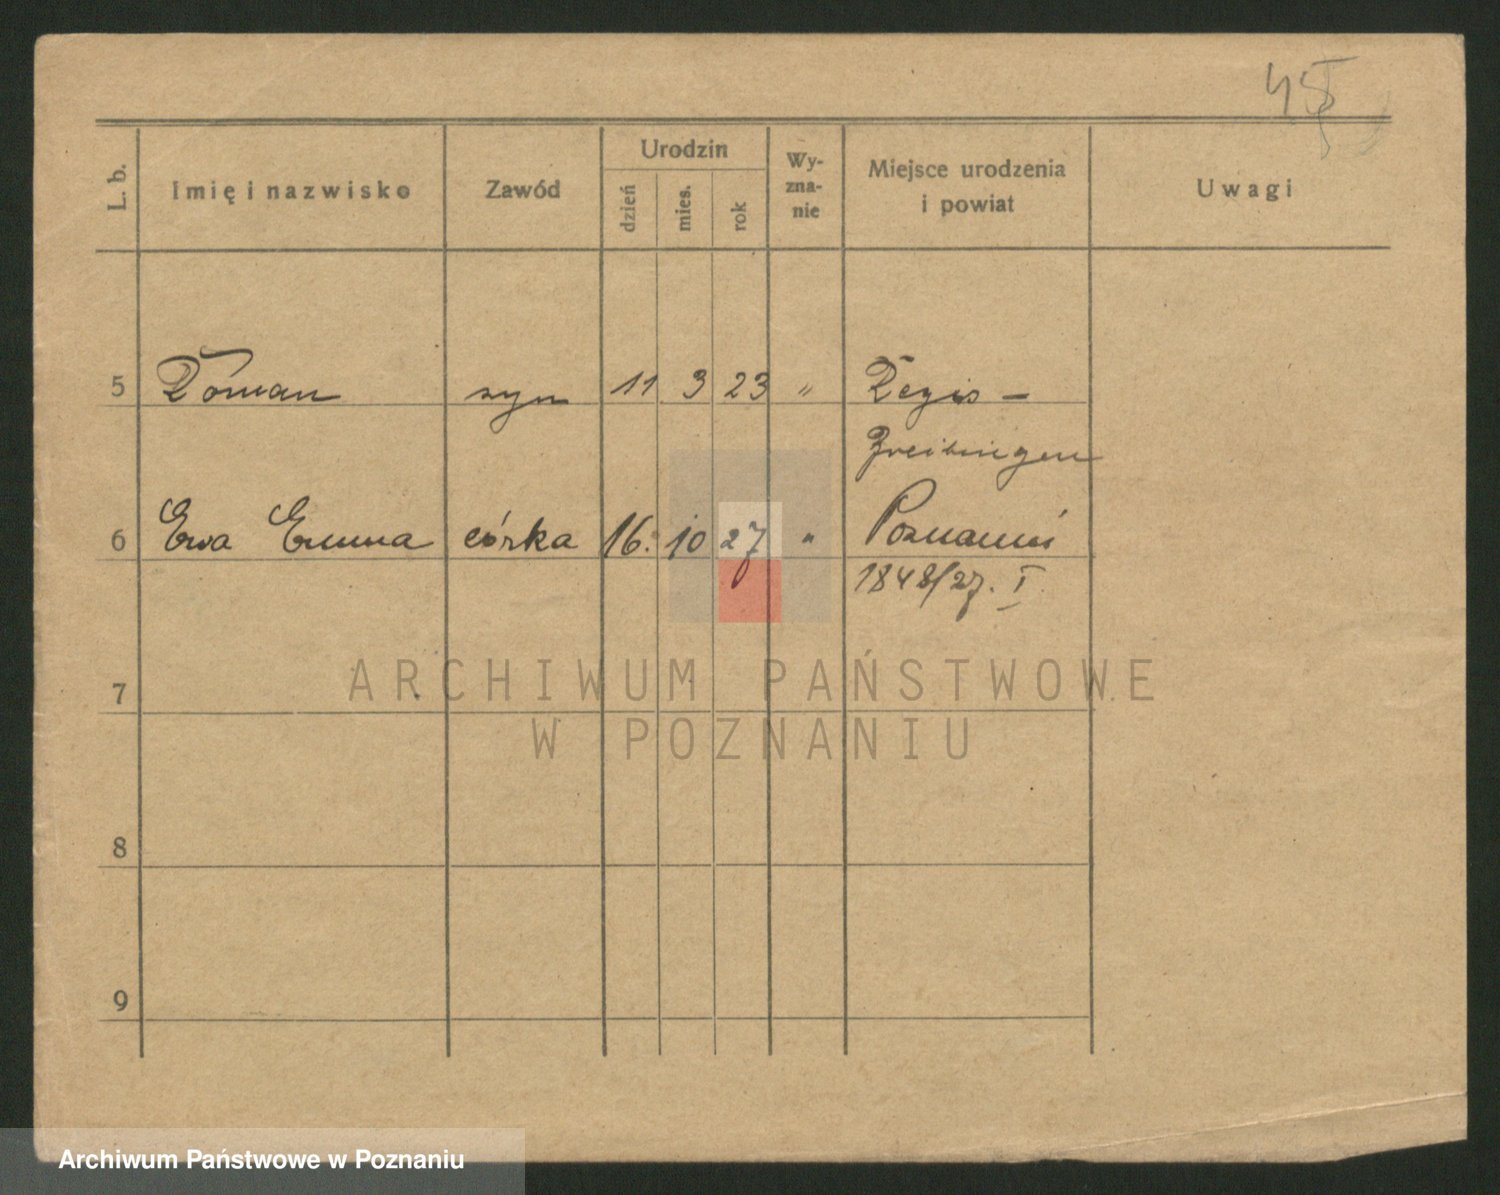 45
Urodzin
L. b.
Imię i nazwisko
Zawód
dzień
mies.
rok
Wy-
zna-
nie
Miejsce urodzenia
i powiat
Uwagi
5 Roman syn 11 3 23 "
6 Ewa Emma córka 16. 10 27 " Poznaniu
1848/27. I
7
8
9
ARCHIWUM PAŃSTWOWE
W POZNANIU
Archiwum Państwowe w Poznaniu